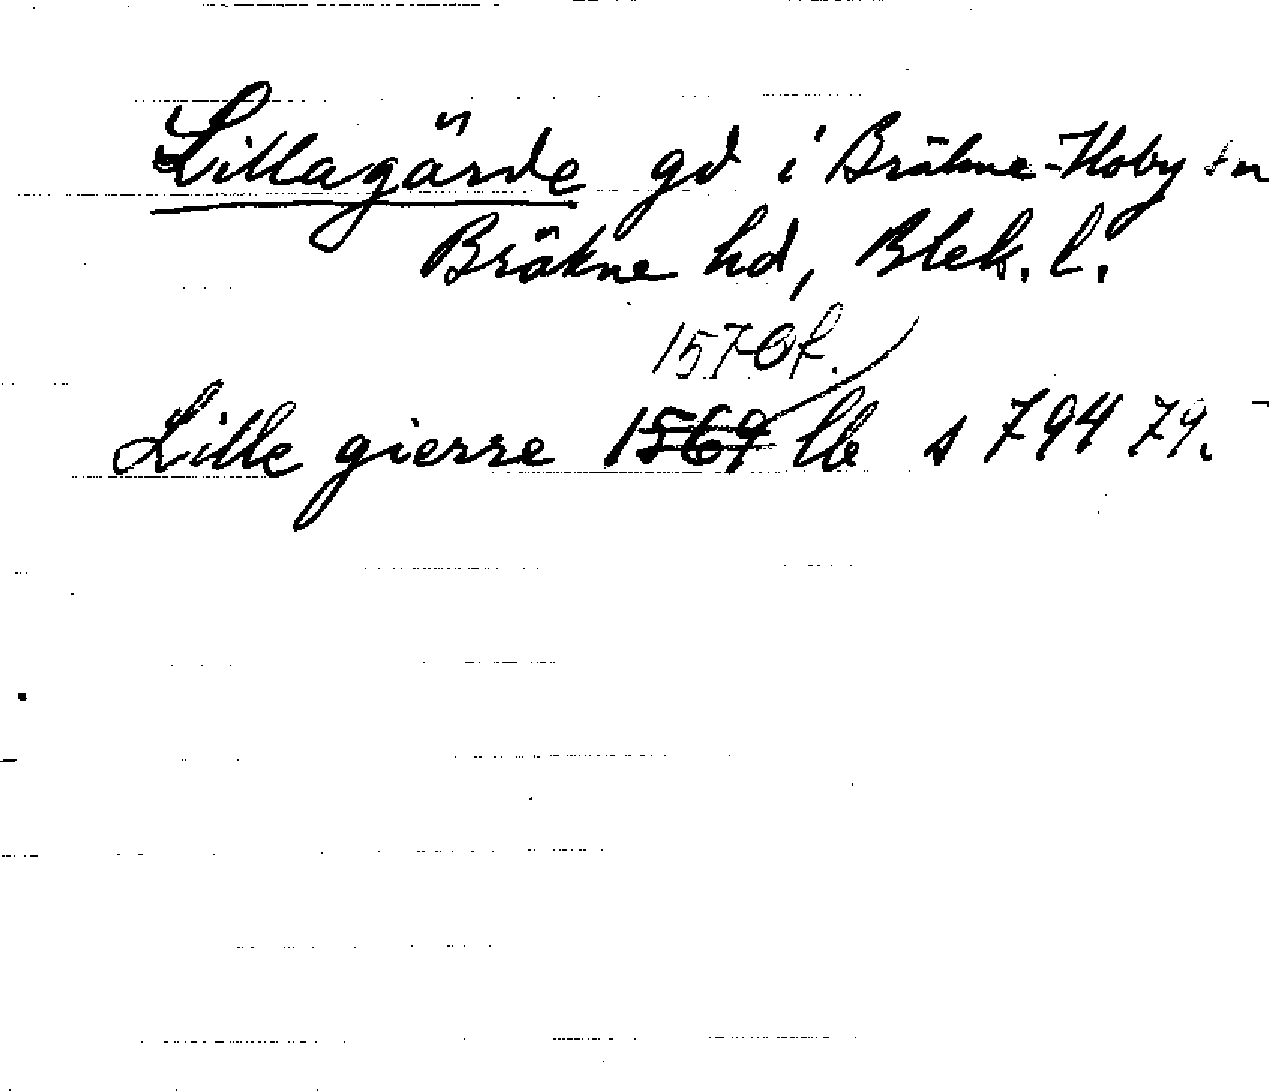 Lillagärde gd i Bräkne-Hoby sn
Bräkne hd, Blek. l.
1570f.
Lille gierre 1569 lb s 794 79.